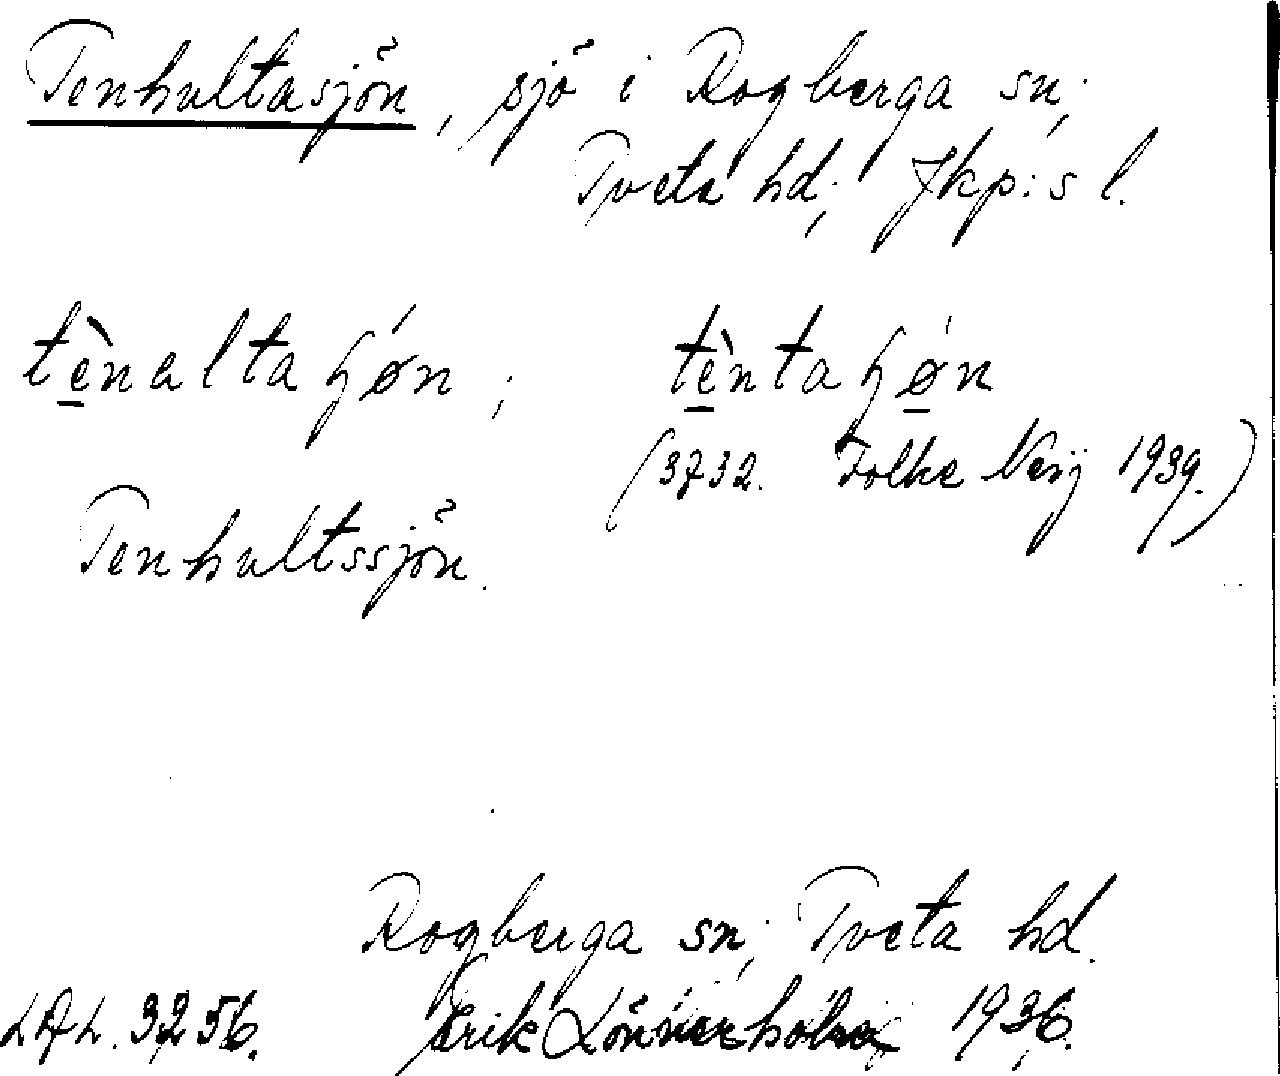 Tenhultasjön, sjö i Rogberga sn;
Tveta hd; Jkp:s l.
tènaltaɧǿn; tèntaɧǿn
(3732. Folke Neij 1939.)
Tenhultssjön.
Rogberga sn; Tveta hd.
LAL. 3256. Erik Lönnerholm 1936.